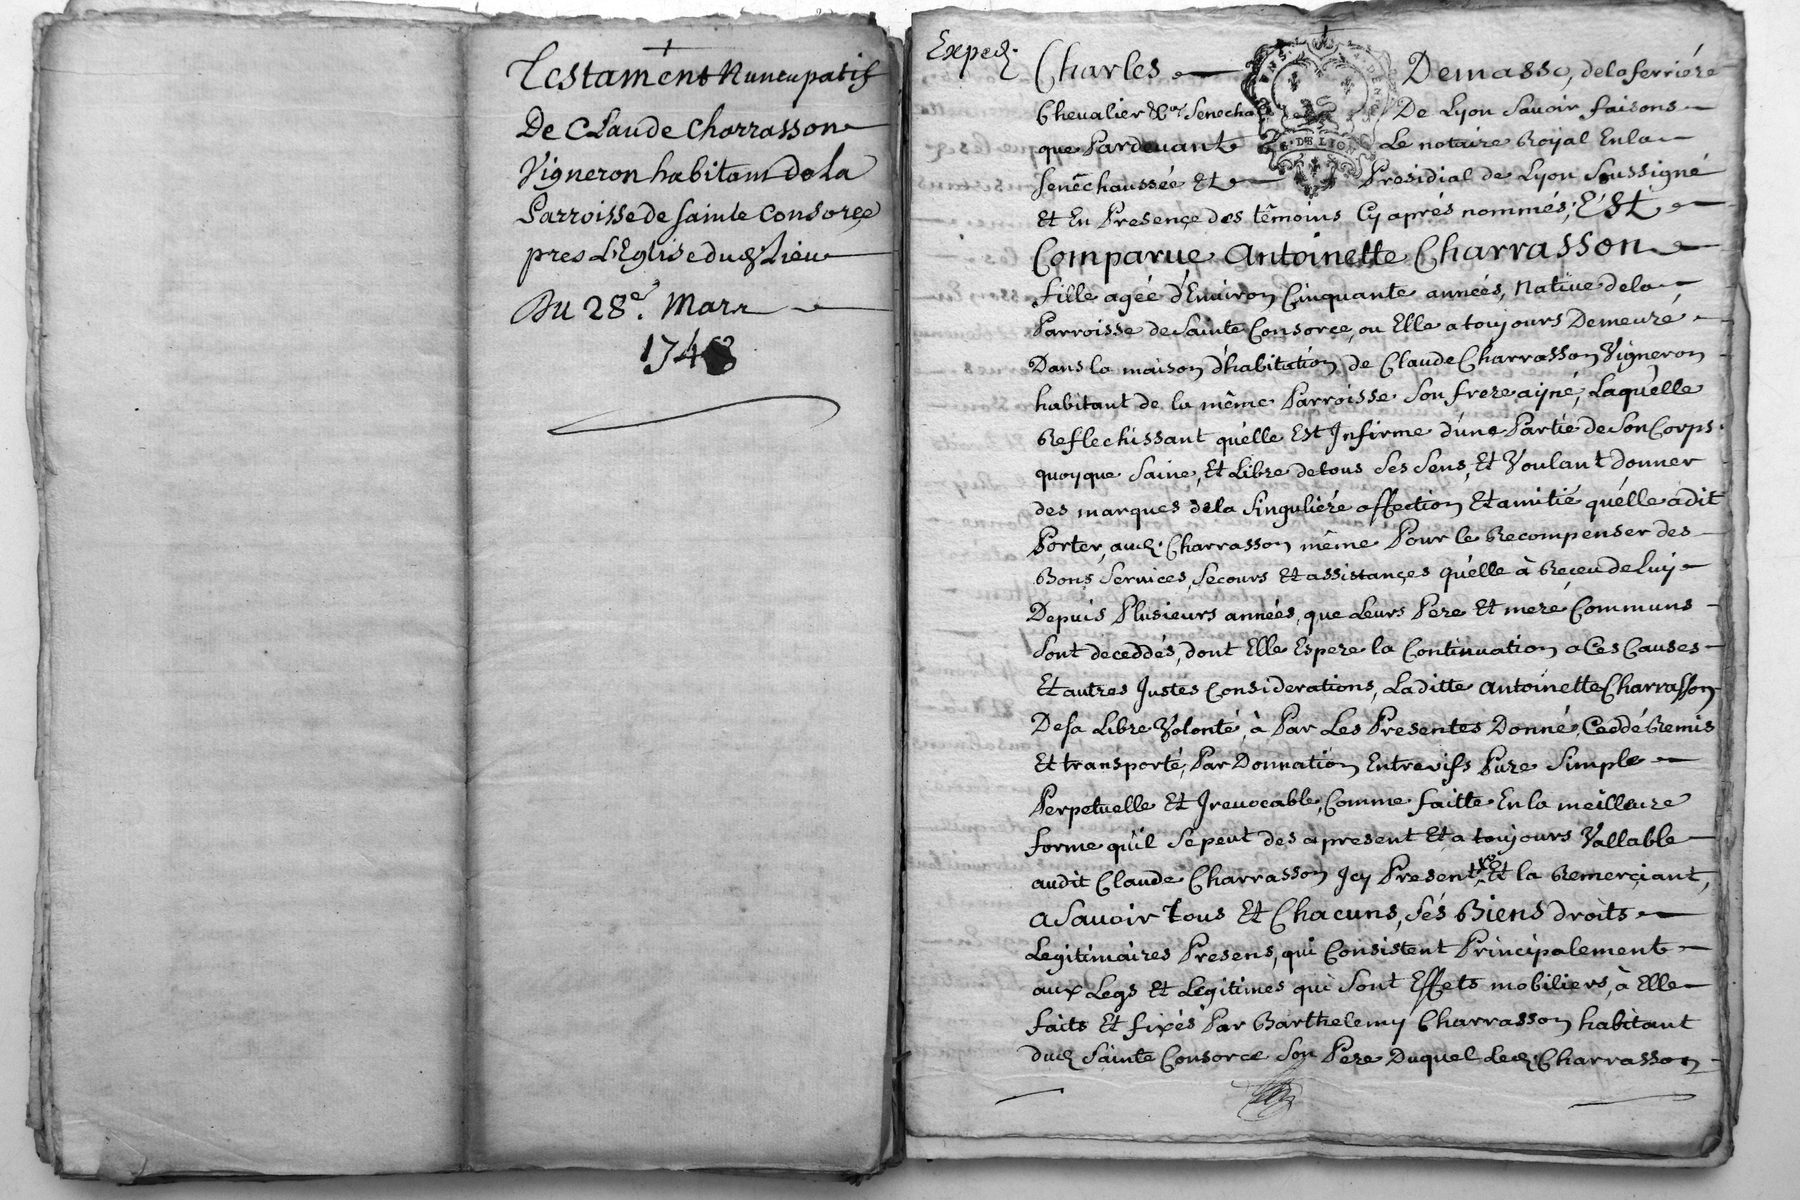 Testament Nuncupatif
De Claude Charrasson
Vigneron habitant de la
Parroisse de sainte Consorçe
pres L'Eglise dud Lieu
Du 28e. Mars
174
Exped.
Charles Demasso, dela ferriére
Chevalier &ca. Senechal De Lyon Savoir faisons
que Pardevant Le notaire Royal Enla
Senêchaussée Et Présidial de Lyon Soussigné
Et En Presençe des têmoins Cy aprés nommés; Est
Comparue Antoinette Charrasson
fille agée d'Environ Cinquante années, Native dela
Parroisse de Sainte Consorçe, ou Elle a toujours Demeuré
Dans la maison d'habitation de Claude Charrasson Vigneron
habitant de la même Parroisse Son frere ayné, Laquelle
Reflechissant qu'elle Est Infirme d'une Partie de Son Corps.
quoyque Saine, Et Libre de tous Ses Sens, Et Voulant donner
des marques dela Singuliére affection Et amitié qu'elle a dit
Porter, aud. Charrasson même Pour le Recompenser des
Bons Services, Secours Et assistançes qu'elle à Reçeu de Luy
Depuis Plusieurs années, que Leurs Pere Et mere Communs
Sont deceddés, dont Elle Espere la Continuation a Ces Causes
Et autres Justes Considerations, Laditte Antoinette Charrasson
De sa Libre Volonté, à Par Les Presentes Donné, Ceddé Remis
Et transporté, Par Donnation Entrevifs Pure Simple
Perpetuelle Et Irevocable, Comme faitte En la meilleure
forme qu'il Se peut des apresent Et a toujours Vallable
audit Claude Charrasson Icy Present, Et la Remerçiant,
a Savoir tous Et Chacuns, Sés Biens droits
Legitimaires Presens, qui Consistent Principalement
aux Legs Et Légitimes qui Sont Effets mobiliers, à Elle
faits Et fixés Par Barthelemy Charrasson habitant
dud Sainte Consorce Son Pere Duquel Led. Charrasson